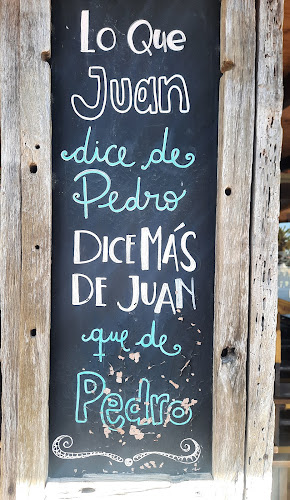 Lo Que
Juan
dice de
Pedro
DICE MÁS
DE JUAN
que de
Pedro